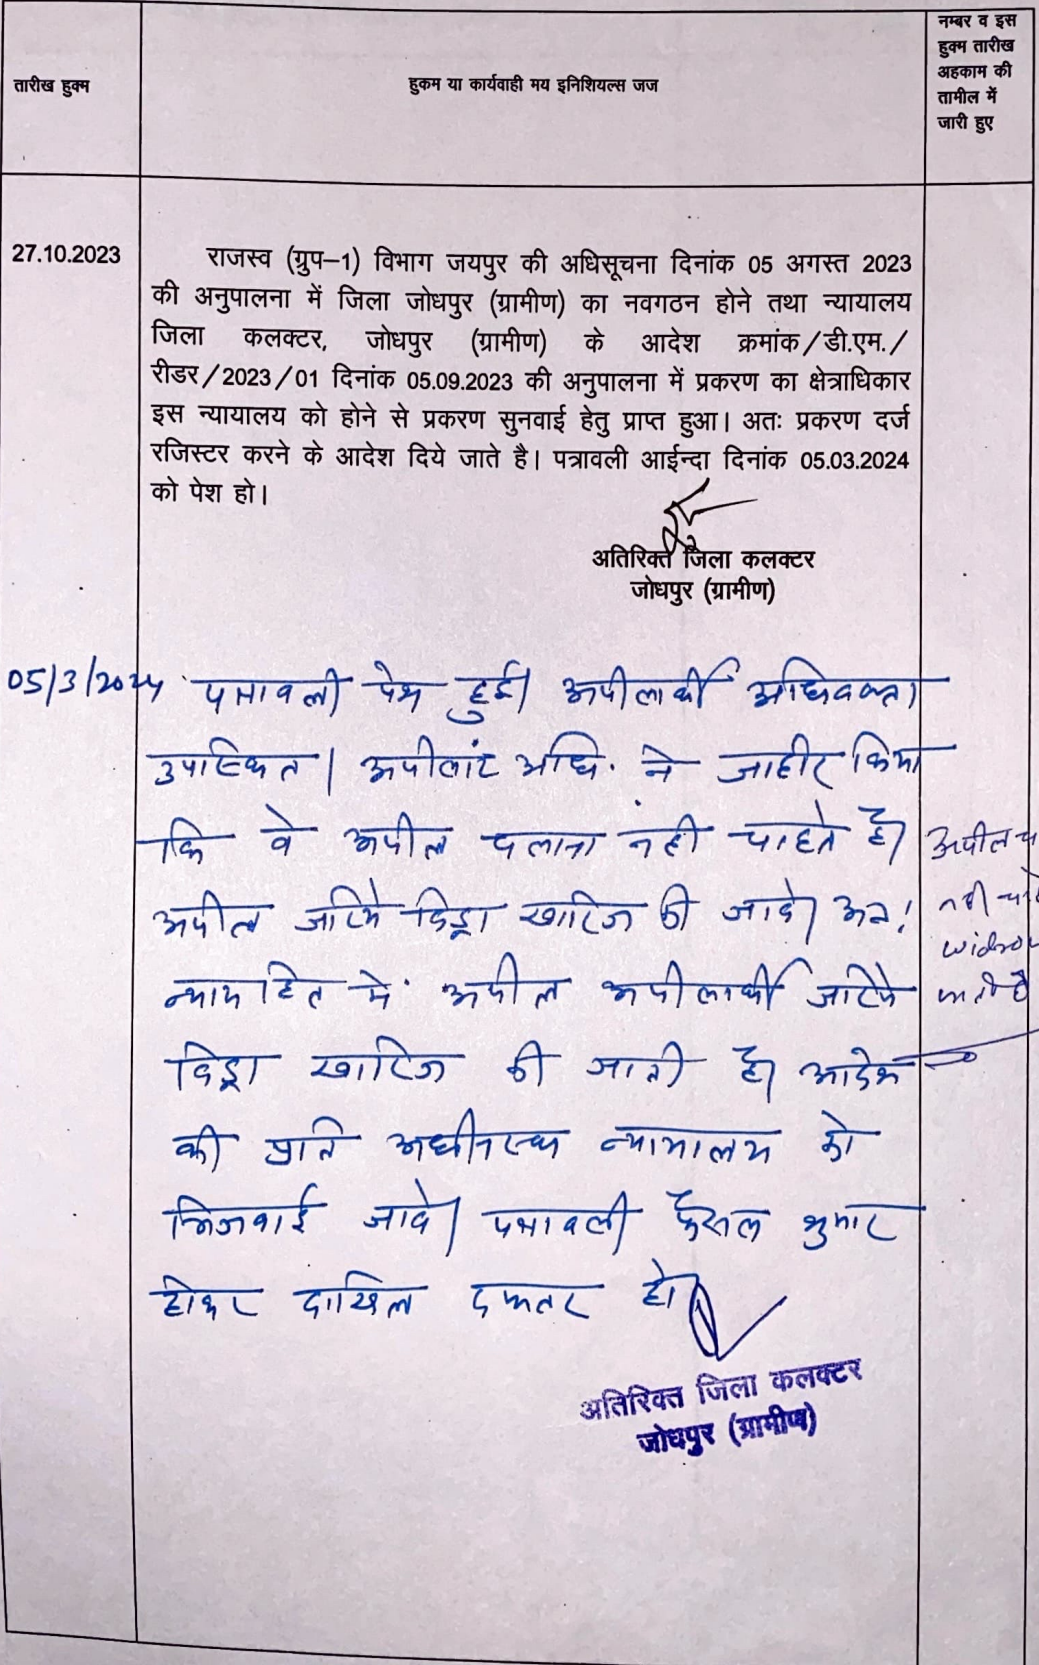 तारीख हुक्म
हुकम या कार्यवाही मय इनिशियल्स जज
नम्बर व इस
हुक्म तारीख
अहकाम की
तामील में
जारी हुए
27.10.2023
राजस्व (ग्रुप–1) विभाग जयपुर की अधिसूचना दिनांक 05 अगस्त 2023
की अनुपालना में जिला जोधपुर (ग्रामीण) का नवगठन होने तथा न्यायालय
जिला कलक्टर, जोधपुर (ग्रामीण) के आदेश क्रमांक/डी.एम./
रीडर/2023/01 दिनांक 05.09.2023 की अनुपालना में प्रकरण का क्षेत्राधिकार
इस न्यायालय को होने से प्रकरण सुनवाई हेतु प्राप्त हुआ। अतः प्रकरण दर्ज
रजिस्टर करने के आदेश दिये जाते है। पत्रावली आईन्दा दिनांक 05.03.2024
को पेश हो।
अतिरिक्त जिला कलक्टर
जोधपुर (ग्रामीण)
05/3/2024 पत्रावली पेश हुई। अपीलार्थी अधिवक्ता
उपस्थित। अपीलांट अधि. ने जाहीर किया
कि वे अपील चलाना नही चाहते है।
अपील जरिये विड्रा खारिज की जावे। अतः
न्यायहित में अपील अपीलार्थी जरिये
विड्रा खारिज की जाती है। आदेश
की प्रति अधीनस्थ न्यायालय को
भिजवाई जावे। पत्रावली फैसल शुमार
होकर दाखिल दफ्तर हो।
अपील
नही
अतिरिक्त जिला कलक्टर
जोधपुर (ग्रामीण)